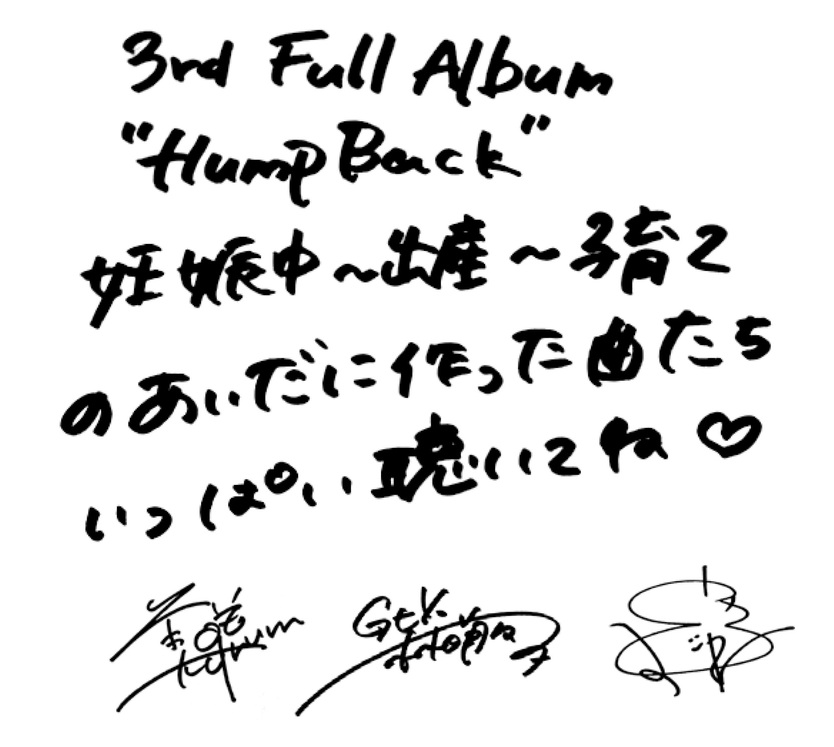 3rd Full Album
"Hump Back"
妊娠中～出産～子育て
のあいだに作った曲たち
いっぱい聴いてね♡